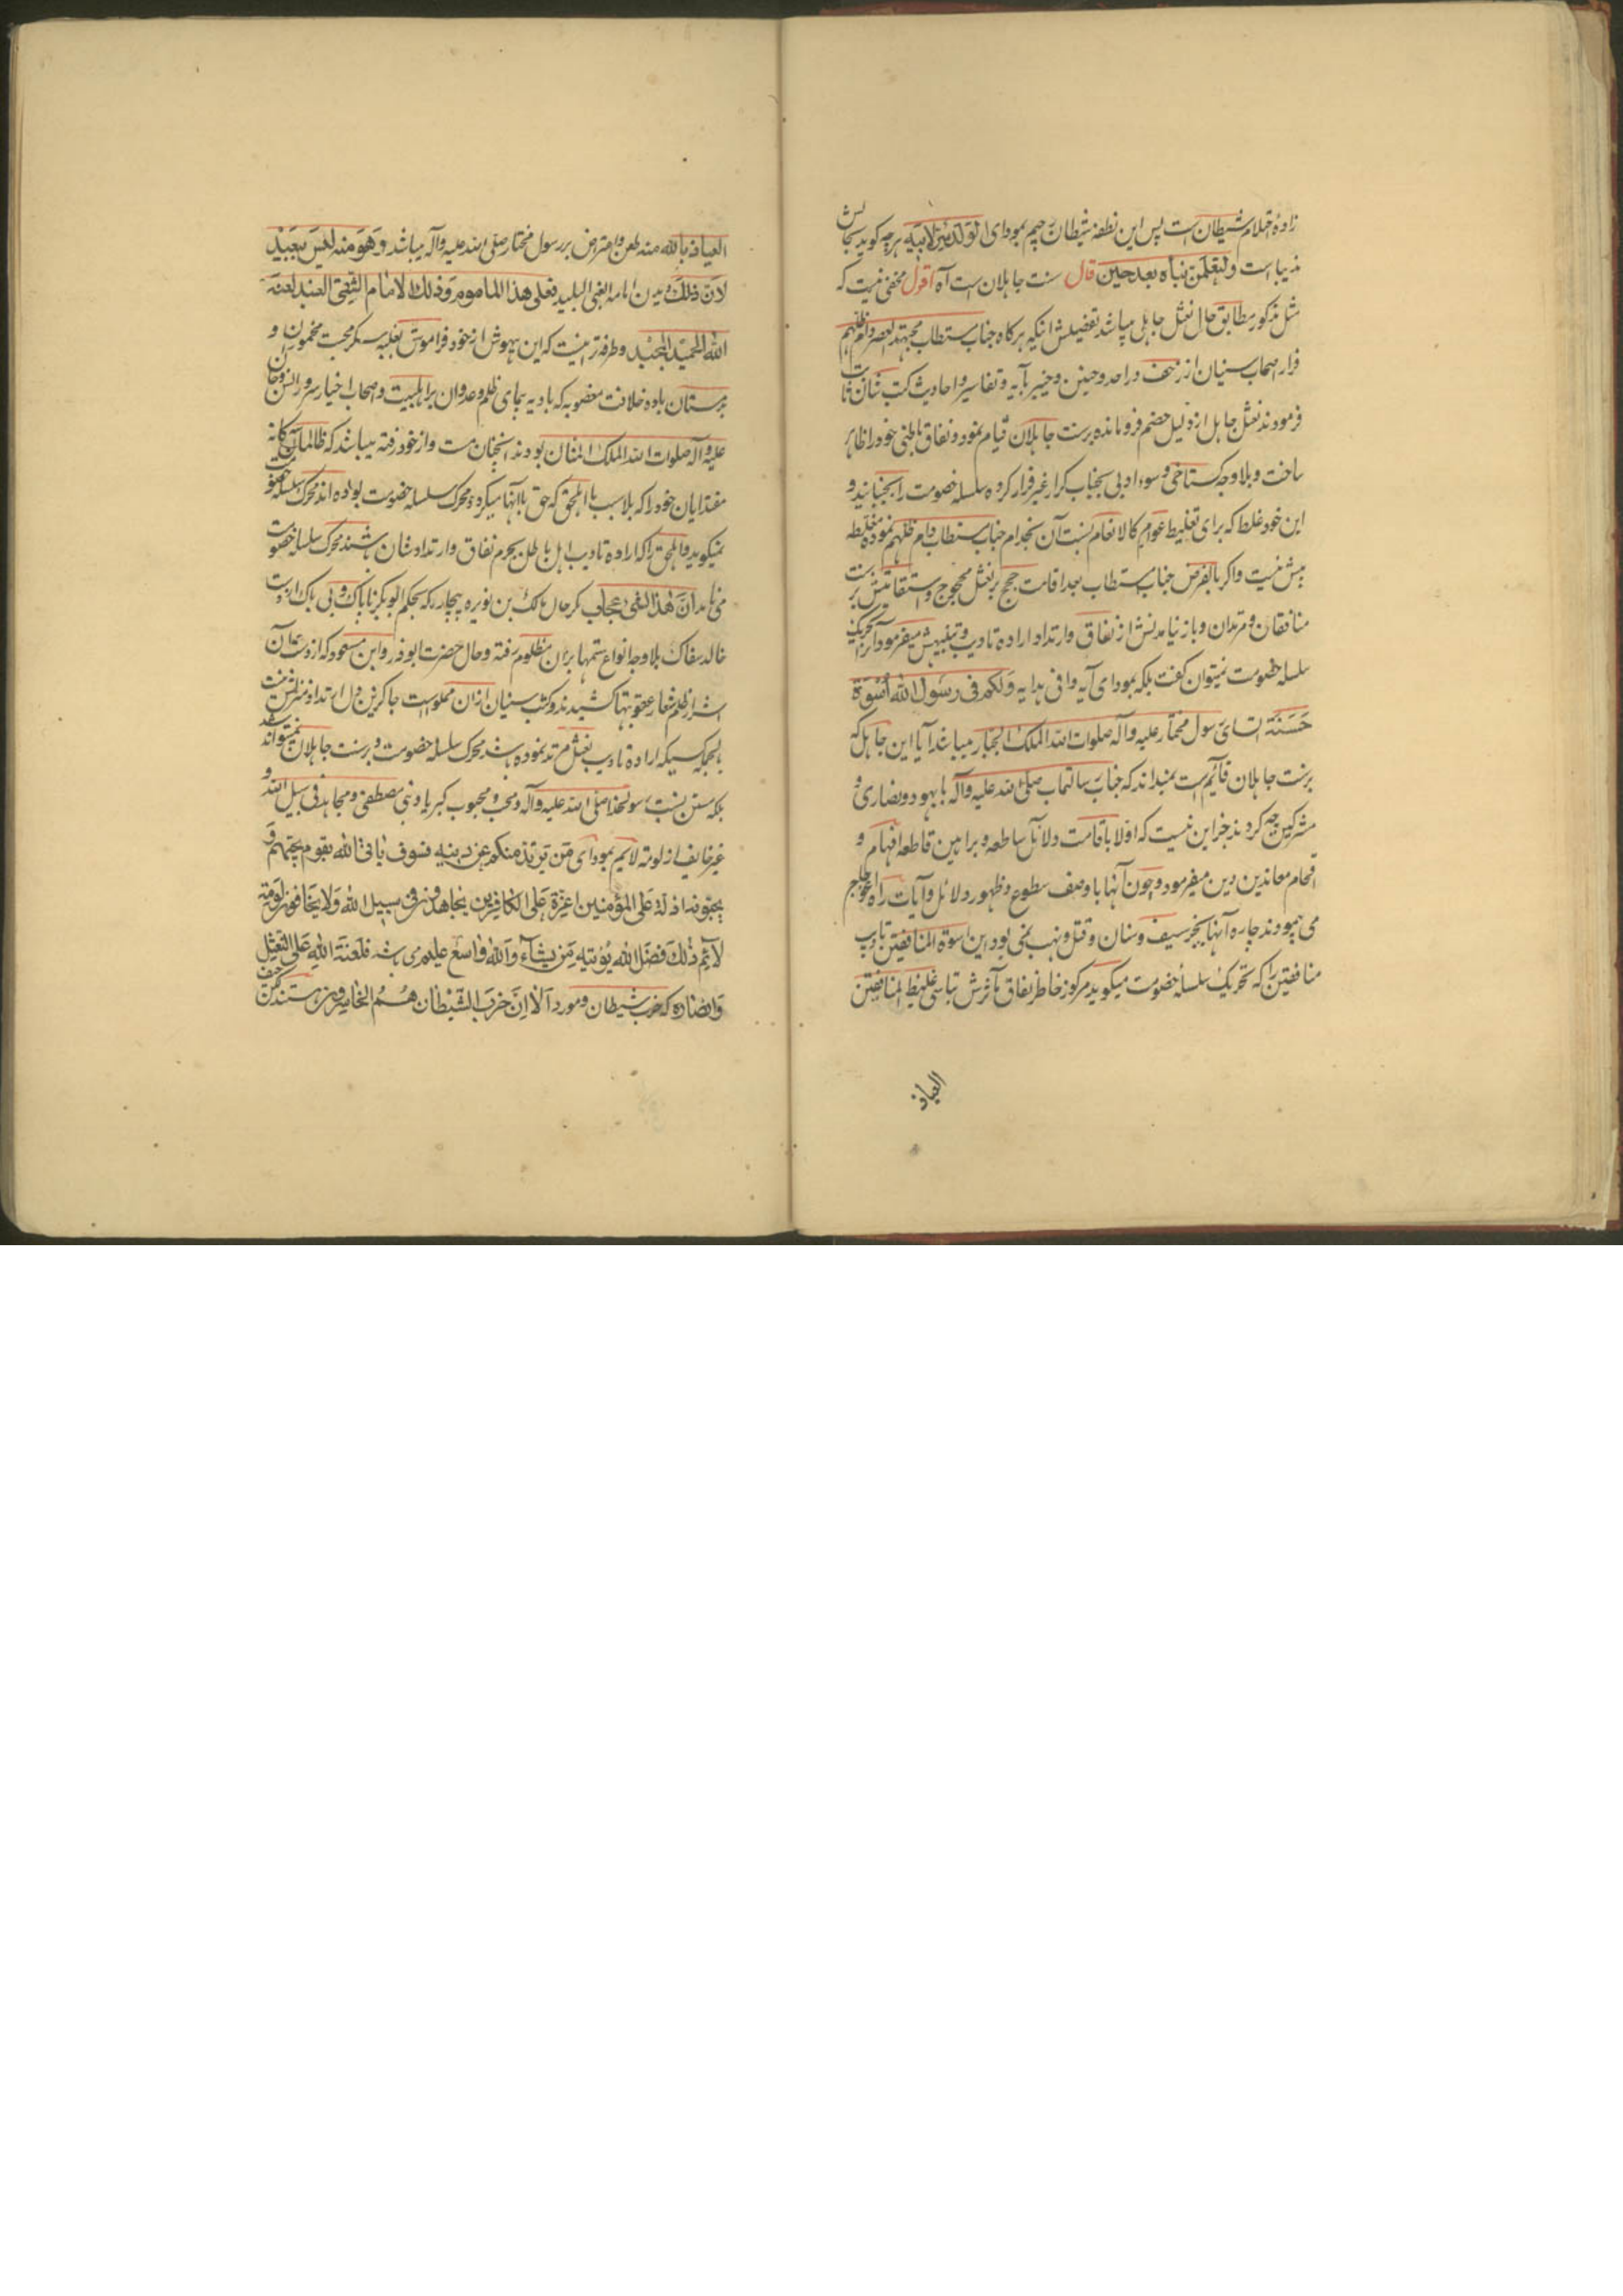 زادهٔ احتلام شیطان است پس این نطفه شیطان رجیم بمودای الولد سر لابیه هرچه گوید بجایش
زیبا است ولتعلمن نباه بعد حین قال سنت جاهلان است آه اقول مخفی نیست که
مثل مذکور مطابق حال نعثل جاهلی میباشد تفصیلش انکه هرکاه جناب مستطاب مجتهد العصر دام ظلهم
فرار اصحاب سنیان از زحف در احد و حنین و خیبر بآیه و تفاسیر و احادیث کتب شان ثابت
فرمودند نعثل جاهل از دلیل خصم فرومانده برسنت جاهلان قیام نمود و نفاق باطنی خود را ظاهر
ساخت و بلاوجه کستاخی و سوء ادبی بجناب کرار غیر فرار کرده سلسله خصومت را بجنبانید و
این خود غلط که برای تغلیط عوام کالانعام نسبت آن بخدام جناب مستطاب دام ظلهم نموده مغلطه
بیش نیست واکر بالفرض جناب مستطاب بعد اقامت حجج بر نعثل محجوج و استقامتش بر سنت
منافقان و مرتدان و باز نیامدنش از نفاق وارتداد اراده تادیب و تنبیهش میفرمود آنرا تحریک
سلسله خصومت نمیتوان کفت بلکه بمودای آیه وافی هدایه ولکم فی رسول الله اسوة
حسنة تاسای رسول مختار علیه وآله صلوات الله الملک الجبار میباشد آیا این جاهل که
برسنت جاهلان قائم است نمیداند که جناب رسالتماب صلی الله علیه وآله با یهود و نصاری و
مشرکین چه کردند جز این نیست که اولا باقامت دلائل ساطعه و براهین قاطعه افهام و
افحام معاندین دین میفرمود و چون آنها باوصف سطوع و ظهور دلائل و آیات راه اعوجاج
می پیمودند چاره آنها بجز سیف و سنان و قتل و نهب نمی بود این اسوة المنافقین تادیب
منافقین را که تحریک سلسلهٔ خصومت میکوید مرکوز خاطر نفاق مآثرش تاسی غلیظ المنافقین
العیاذ
العیاذ بالله منه طعن و اعتراض بر رسول مختار صلی الله علیه وآله میباشد وهو منه لیس ببعید
لان ذلک دیدن امامه الغبی البلید فعلی هذا الماموم وذلک الامام الشقی العنید لعنة
الله الحمید المجید وطرفه تر اینست که این بیهوش از خود فراموش بغلبه سکر محبت مخموران و
بدمستان باده خلافت مغصوبه که بادیه پیمای ظلم وعدوان بر اهلبیت واصحاب اخیار سرور انس وجان
علیه وآله صلوات الله الملک المنان بودند آنچنان مست واز خود رفته میباشد که ظالمان
مقتدایان خود را که بلا سبب با اهل حق که حق با آنها میکردد محرک سلسله خصومت بوده اند محرک سلسله خصومت
نمیکوید واهل حق را که اراده تادیب اهل باطل بجرم نفاق وارتداد شان باشند محرک سلسله خصومت
می نامد ان هذا لشیء عجاب مکر حال مالک بن نویره بیچاره که بحکم ابوبکر ناپاک و بی باک از دست
خالد سفاک بلا وجه انواع ستمها بران مظلوم رفته وحال حضرت ابوذر وابن مسعود که از دست عثمان
اشرار ظلم شعار عقوبتها کشیدند و کتب سنیان ازان مملو است
بالجمله کسیکه اراده تادیب نعثل مرتد نموده باشد محرک سلسله خصومت و برسنت جاهلان نمیتواند شد
بلکه مستن بسنت رسولخدا صلی الله علیه وآله ومحب ومحبوب کبریا ونبی مصطفی ومجاهد فی سبیل الله و
غیر خایف از لومة لایم بمودای من یرتد منکم عن دینه فسوف یاتی الله بقوم یحبهم و
یحبونه اذلة علی المؤمنین اعزة علی الکافرین یجاهدون فی سبیل الله ولا یخافون لومة
لائم ذلک فضل الله یؤتیه من یشاء والله واسع علیم می باشد فلعنة الله علی النعثل
وانصاره که حزب شیطان و مورد الا ان حزب الشیطان هم الخاسرون هستند